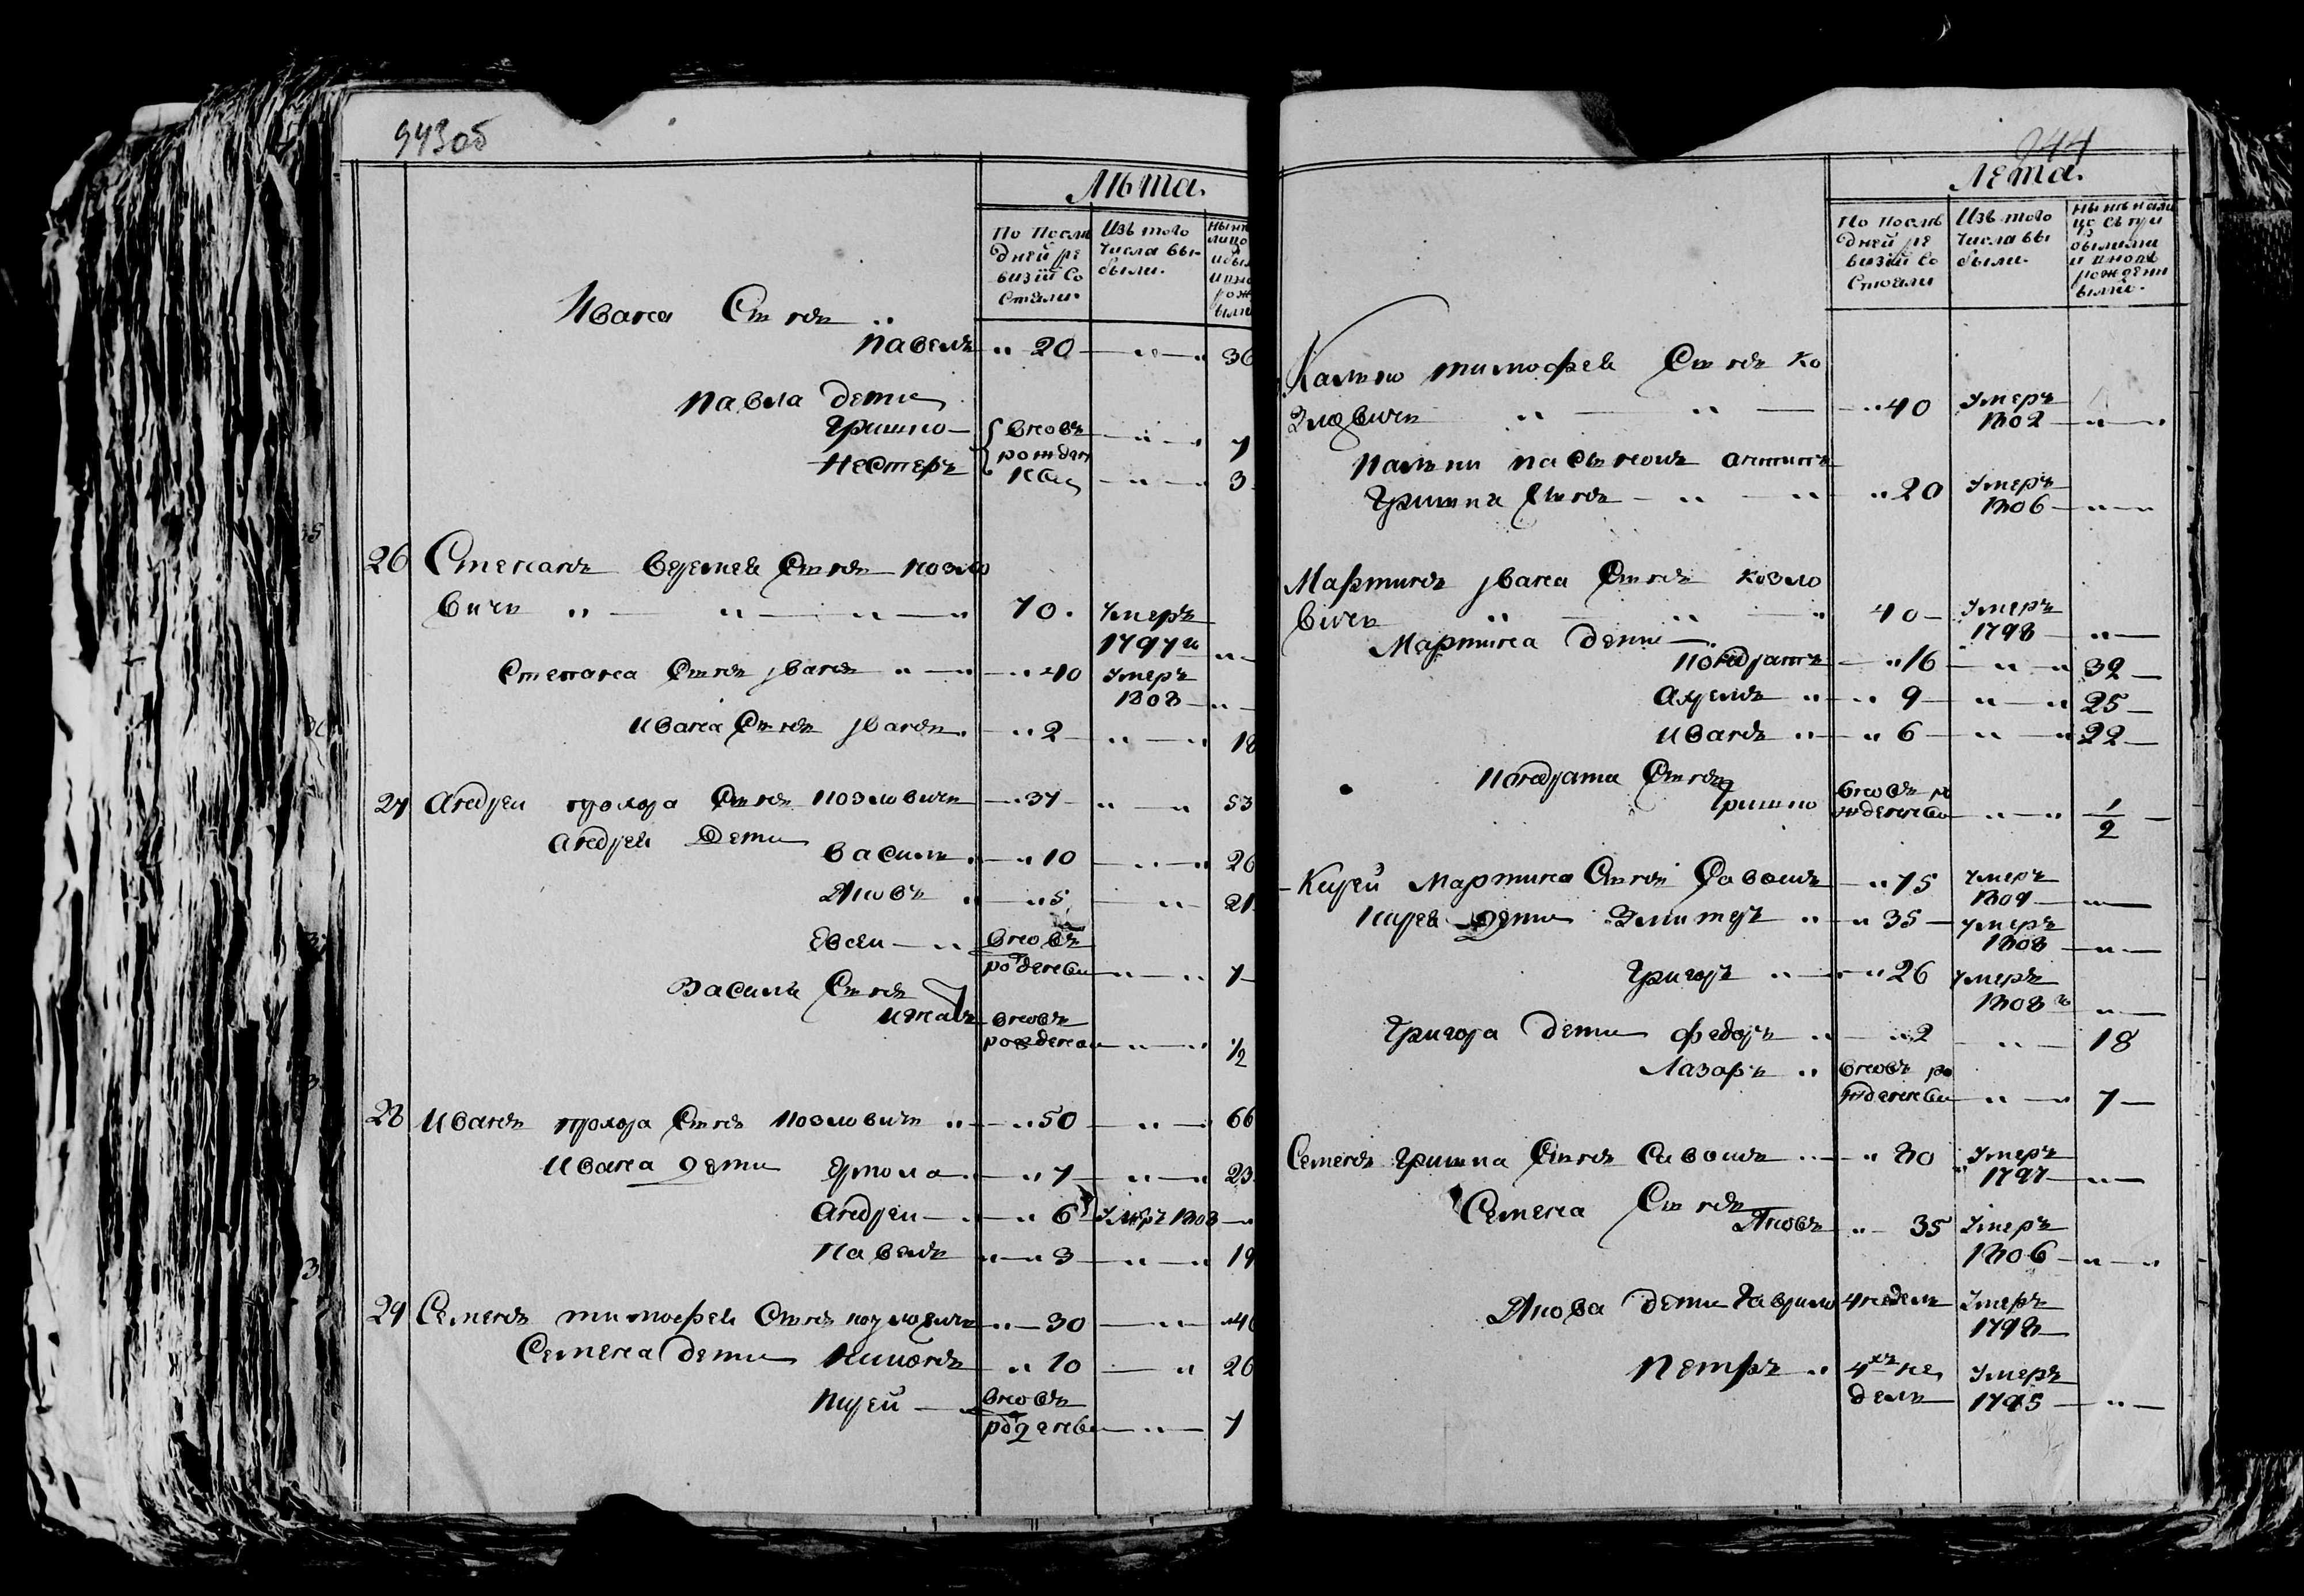 943об
Лѣта.
По послѣ
дней ре
визіи со
стояли.
Изъ того
числа вы-
были.
Ивана Сынъ
Павелъ 20 36
Павла дети
Гришко вновь 7
Нестеръ рожден 3
26 Степанъ Веремея Сынъ Козло
вичъ 70 умеръ
1797
Степана Сынъ Иванъ 40 умеръ
1808
Ивана Сынъ Иванъ 2 18
27 Андреи прохора Сынъ Козловичъ 37 53
Андрея Дети Василь 10 26
Яковъ 5 21
Евсеи вновь
7
Василя Сынъ
вновь
1/2
28 Иванъ прохора Сынъ Козловичъ 50 66
Ивана дети Ермола 7 23
Андреи 6 умеръ 1808
Павелъ 3 19
29 Семенъ тимофея Сынъ козловичъ 30 46
Семена дети 10 26
вновь
7
944
Лета.
По послѣ
дней ре
визіи со
стояли
Изъ того
числа вы
были.
тимофея Сынъ Ко
зловичъ 40 умеръ
1802
Гришка Сынъ 20 умеръ
1806
Мартинъ Ивана Сынъ Козло
вичъ 40 умеръ
1798
Мартина дети
Кондратъ 16 32
9 25
Иванъ 6 22
Кондрата Сынъ
Гришко вновь ро
жденныи 1/2
Кирей Мартина Сынъ Савошъ 75 умеръ
1809
Кирея Дети Змитеръ 35 умеръ
1808
Григоръ 26 умеръ
1808
Григора дети федоръ 2 18
Лазаръ вновь ро
жденныи 7
Семенъ Гришка Сынъ Савошъ 80 умеръ
1797
Семена Сынъ
Яковъ 35 умеръ
1806
Якова дети Гаврило 4 недель умеръ
1798
Петръ 4хъ не
дель умеръ
1795